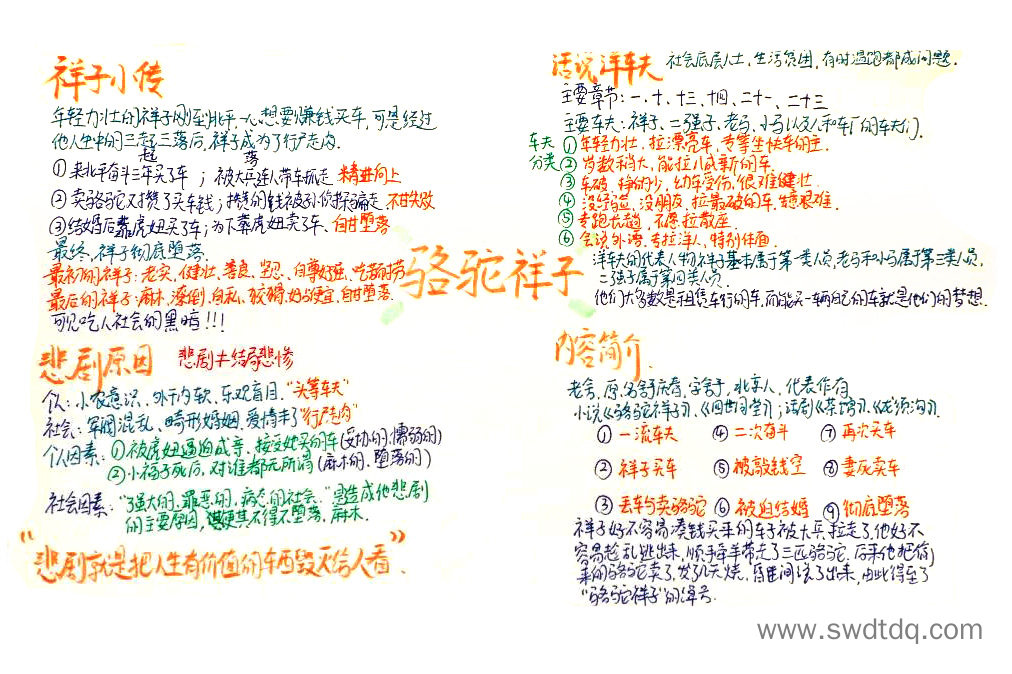 祥子小传
年轻力壮的祥子刚到北平,一心想要赚钱买车,可是经过
他人生中的三起三落后,祥子成为了行尸走肉.
起 落
①来北平奋斗三年买了车;被大兵连人带车抓走 精进向上
②卖骆驼又攒了买车钱;攒的钱被孙侦探骗走.不甘失败
③结婚后靠虎妞买了车;为下葬虎妞卖了车.自甘堕落
最终,祥子彻底堕落.
最初的祥子:老实,健壮、善良,坚忍、自尊好强,吃苦耐劳
最后的祥子:麻木,潦倒,自私,狡猾,好占便宜,自甘堕落.
可见吃人社会的黑暗!!!
骆驼祥子
悲剧原因 悲剧≠结局悲惨
个人:小农意识、外干内软、乐观盲目."头等车夫"
社会:军阀混乱、畸形婚姻,爱情来了"行尸走肉"
个人因素:①被虎妞逼迫成亲,接受她买的车(妥协的,懦弱的)
②小福子死后,对谁都无所谓(麻木的,堕落的)
社会因素:"强大的、罪恶的,病态的社会."是造成他悲剧
的主要原因,使其不得不堕落,麻木.
"悲剧就是把人生有价值的东西毁灭给人看".
话说洋车夫 社会底层人士,生活贫困,有时温饱都成问题.
主要章节:一、十、十三、十四、二十一、二十三
主要车夫:祥子、二强子、老马、小马以及人和车厂的车夫们.
车夫
分类
①年轻力壮,拉漂亮车,专等坐快车的主.
②岁数稍大,能拉八成新的车.
③车破,挣的少,幼年受伤,很难健壮.
④没经验,没朋友,拉最破的车,生意很难.
⑤专跑长趟,不愿拉散座.
⑥会说外语,专拉洋人,特别体面.
洋车夫的代表人物祥子基本属于第一类人员,老马和小马属于第三类人员,
二强子属于第四类人员.
他们大多数是租赁车行的车,而能买一辆自己的车就是他们的梦想.
内容简介
老舍,原名舒庆春,字舍予,北京人、代表作有
小说《骆驼祥子》、《四世同堂》;话剧《茶馆》、《龙须沟》.
①一流车夫 ④二次奋斗 ⑦再次买车
②祥子买车 ⑤被敲钱空 ⑧妻死卖车
③丢车与卖骆驼 ⑥被迫结婚 ⑨彻底堕落
祥子好不容易凑钱买来的车子被大兵拉走了,他好不
容易趁乱逃出来,顺手牵羊带走了三匹骆驼,后来他把
来的骆驼卖了,发了几天烧,昏睡间说了出来,由此得到了
"骆驼祥子"的洋号.
www.swdtdq.com